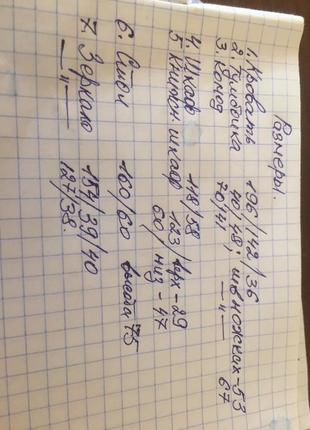 Размеры.
1. Кровать 196/142/36
2. Тумбочка 40/48; шв ножках-53
3. Комод 70/41 —"— 67
4. Шкаф 118/58
5. Книжн. шкаф 123/верх-29
60/низ-47
6. Стол 160/60 высота 75
7. Зеркало 154/39/40
—"— 127/38.